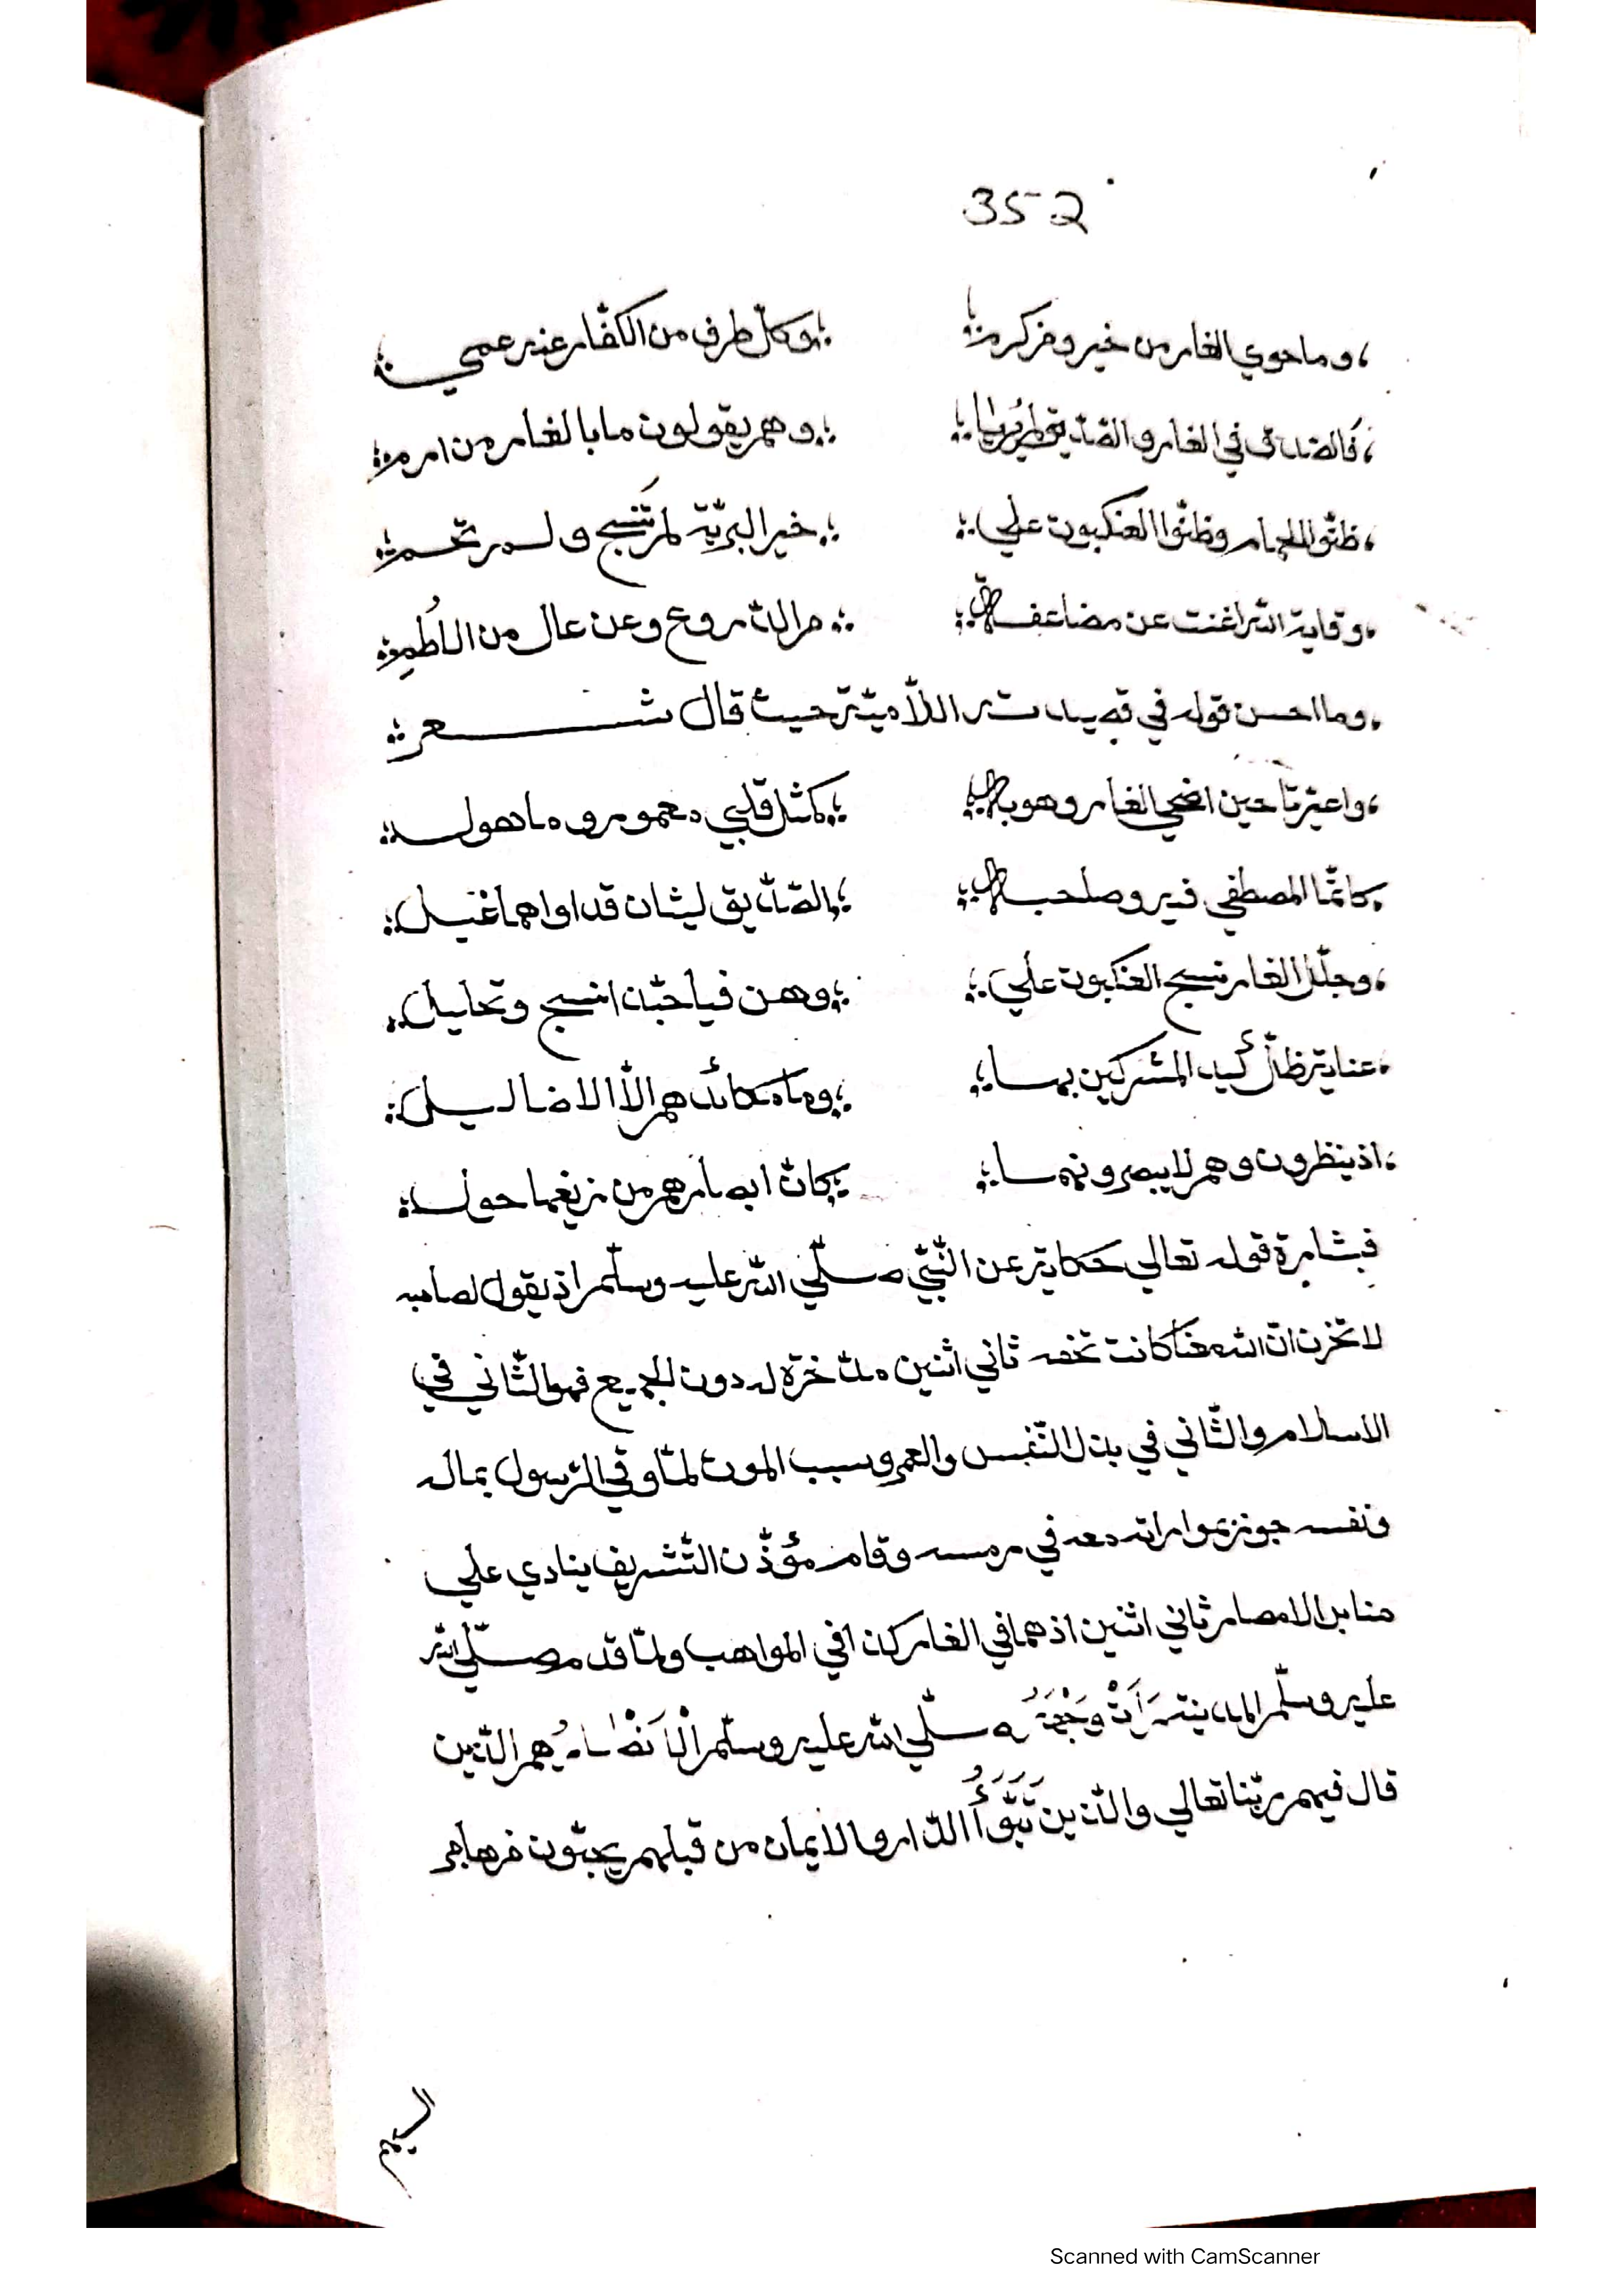 352
وما حوي الغار من خير ومن كرم وكل طرف من الكفّار عنه عمي
فالصدق في الغار والصدّيق لم يرما وهم يقولون ما بالغار من ارم
ظنّوا الحمام وظنّوا العنكبوت علي خير البريّة لم تَنسج ولم تحم
وقاية الله اغنت عن مضاعفة من الدّروع وعن عال من الاُطم
وما احسن قوله في قصيدته اللاّميّة حيث قال شعر
واغيرتا حين اضحي الغار وهو به كمثل قلبي معمور وماهول
كانّما المصطفي فيه وصاحبه الصّدّيق ليثان قد اواهما غيل
وجلّل الغار نسج العنكبوت علي وهن فيا حبّذا نسج وتجليل
عناية ظلّ كيد المشركين بها وما مكائدهم الاّ الاضاليل
اذ ينظرون وهم لا يبصرونهما كانّ ابصارهم من زيغها حول
فبشارة قوله تعالي حكاية عن النّبيّ صلّي الله عليه وسلّم اذ يقول لصاحبه
لا تحزن انّ الله معنا كانت تحفه ثاني اثنين مدّخرة له دون الجميع فهو الثّاني في
الاسلام والثّاني في بذل النّفس والعمر وسبب الموت لمّا وقي الرّسول بماله
ونفسه جوزي بمواراته معه في رمسه وقام مؤذّن التّشريف ينادي علي
منابر الامصار ثاني اثنين اذ هما في الغار كذا في المواهب ولمّا قدم صلّي الله
عليه وسلّم المدينة صلّي الله عليه وسلّم الْاَنْصَارُ هم الّذين
قال فيهم ربّنا تعالي والّذين تَبَوَّأُ الدّار والايمان من قبلهم يحبّون من هاجر
اليهم
Scanned with CamScanner